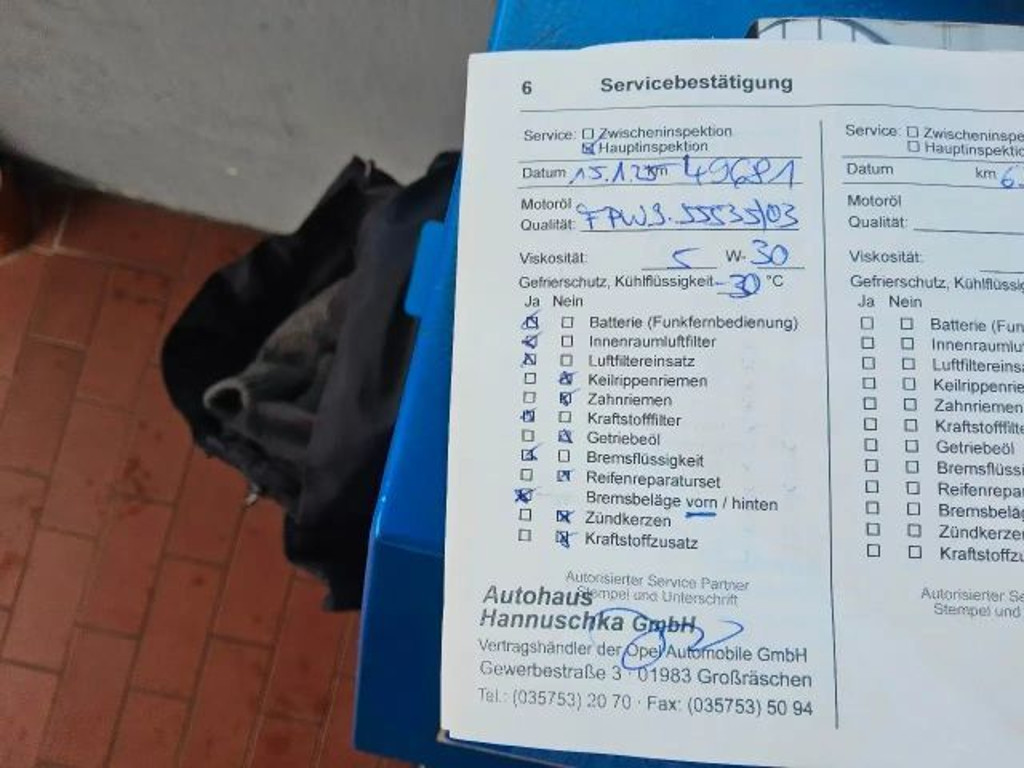 6 Servicebestätigung
Service: Zwischeninspektion
Hauptinspektion
Datum 15.1.25 km 49681
Motoröl
Qualität:
Viskosität: 5 W- 30
Gefrierschutz, Kühlflüssigkeit -30 °C
Ja Nein
Batterie (Funkfernbedienung)
Innenraumluftfilter
Luftfiltereinsatz
Keilrippenriemen
Zahnriemen
Kraftstofffilter
Getriebeöl
Bremsflüssigkeit
Reifenreparaturset
Bremsbeläge vorn / hinten
Zündkerzen
Kraftstoffzusatz
Autorisierter Service Partner
Stempel und Unterschrift
Autohaus
Hannuschka GmbH
Vertragshändler der Opel Automobile GmbH
Gewerbestraße 3 · 01983 Großräschen
Tel.: (035753) 20 70 · Fax: (035753) 50 94
Service: Zwischeninspe
Hauptinspektio
Datum km 6
Motoröl
Qualität:
Viskosität:
Gefrierschutz, Kühlflüssig
Ja Nein
Batterie (Fun
Innenraumluf
Luftfiltereins
Keilrippenrie
Zahnriemen
Kraftstofffilte
Getriebeöl
Bremsflüss
Reifenrepar
Bremsbeläg
Zündkerzen
Kraftstoffzu
Autorisierter Se
Stempel und